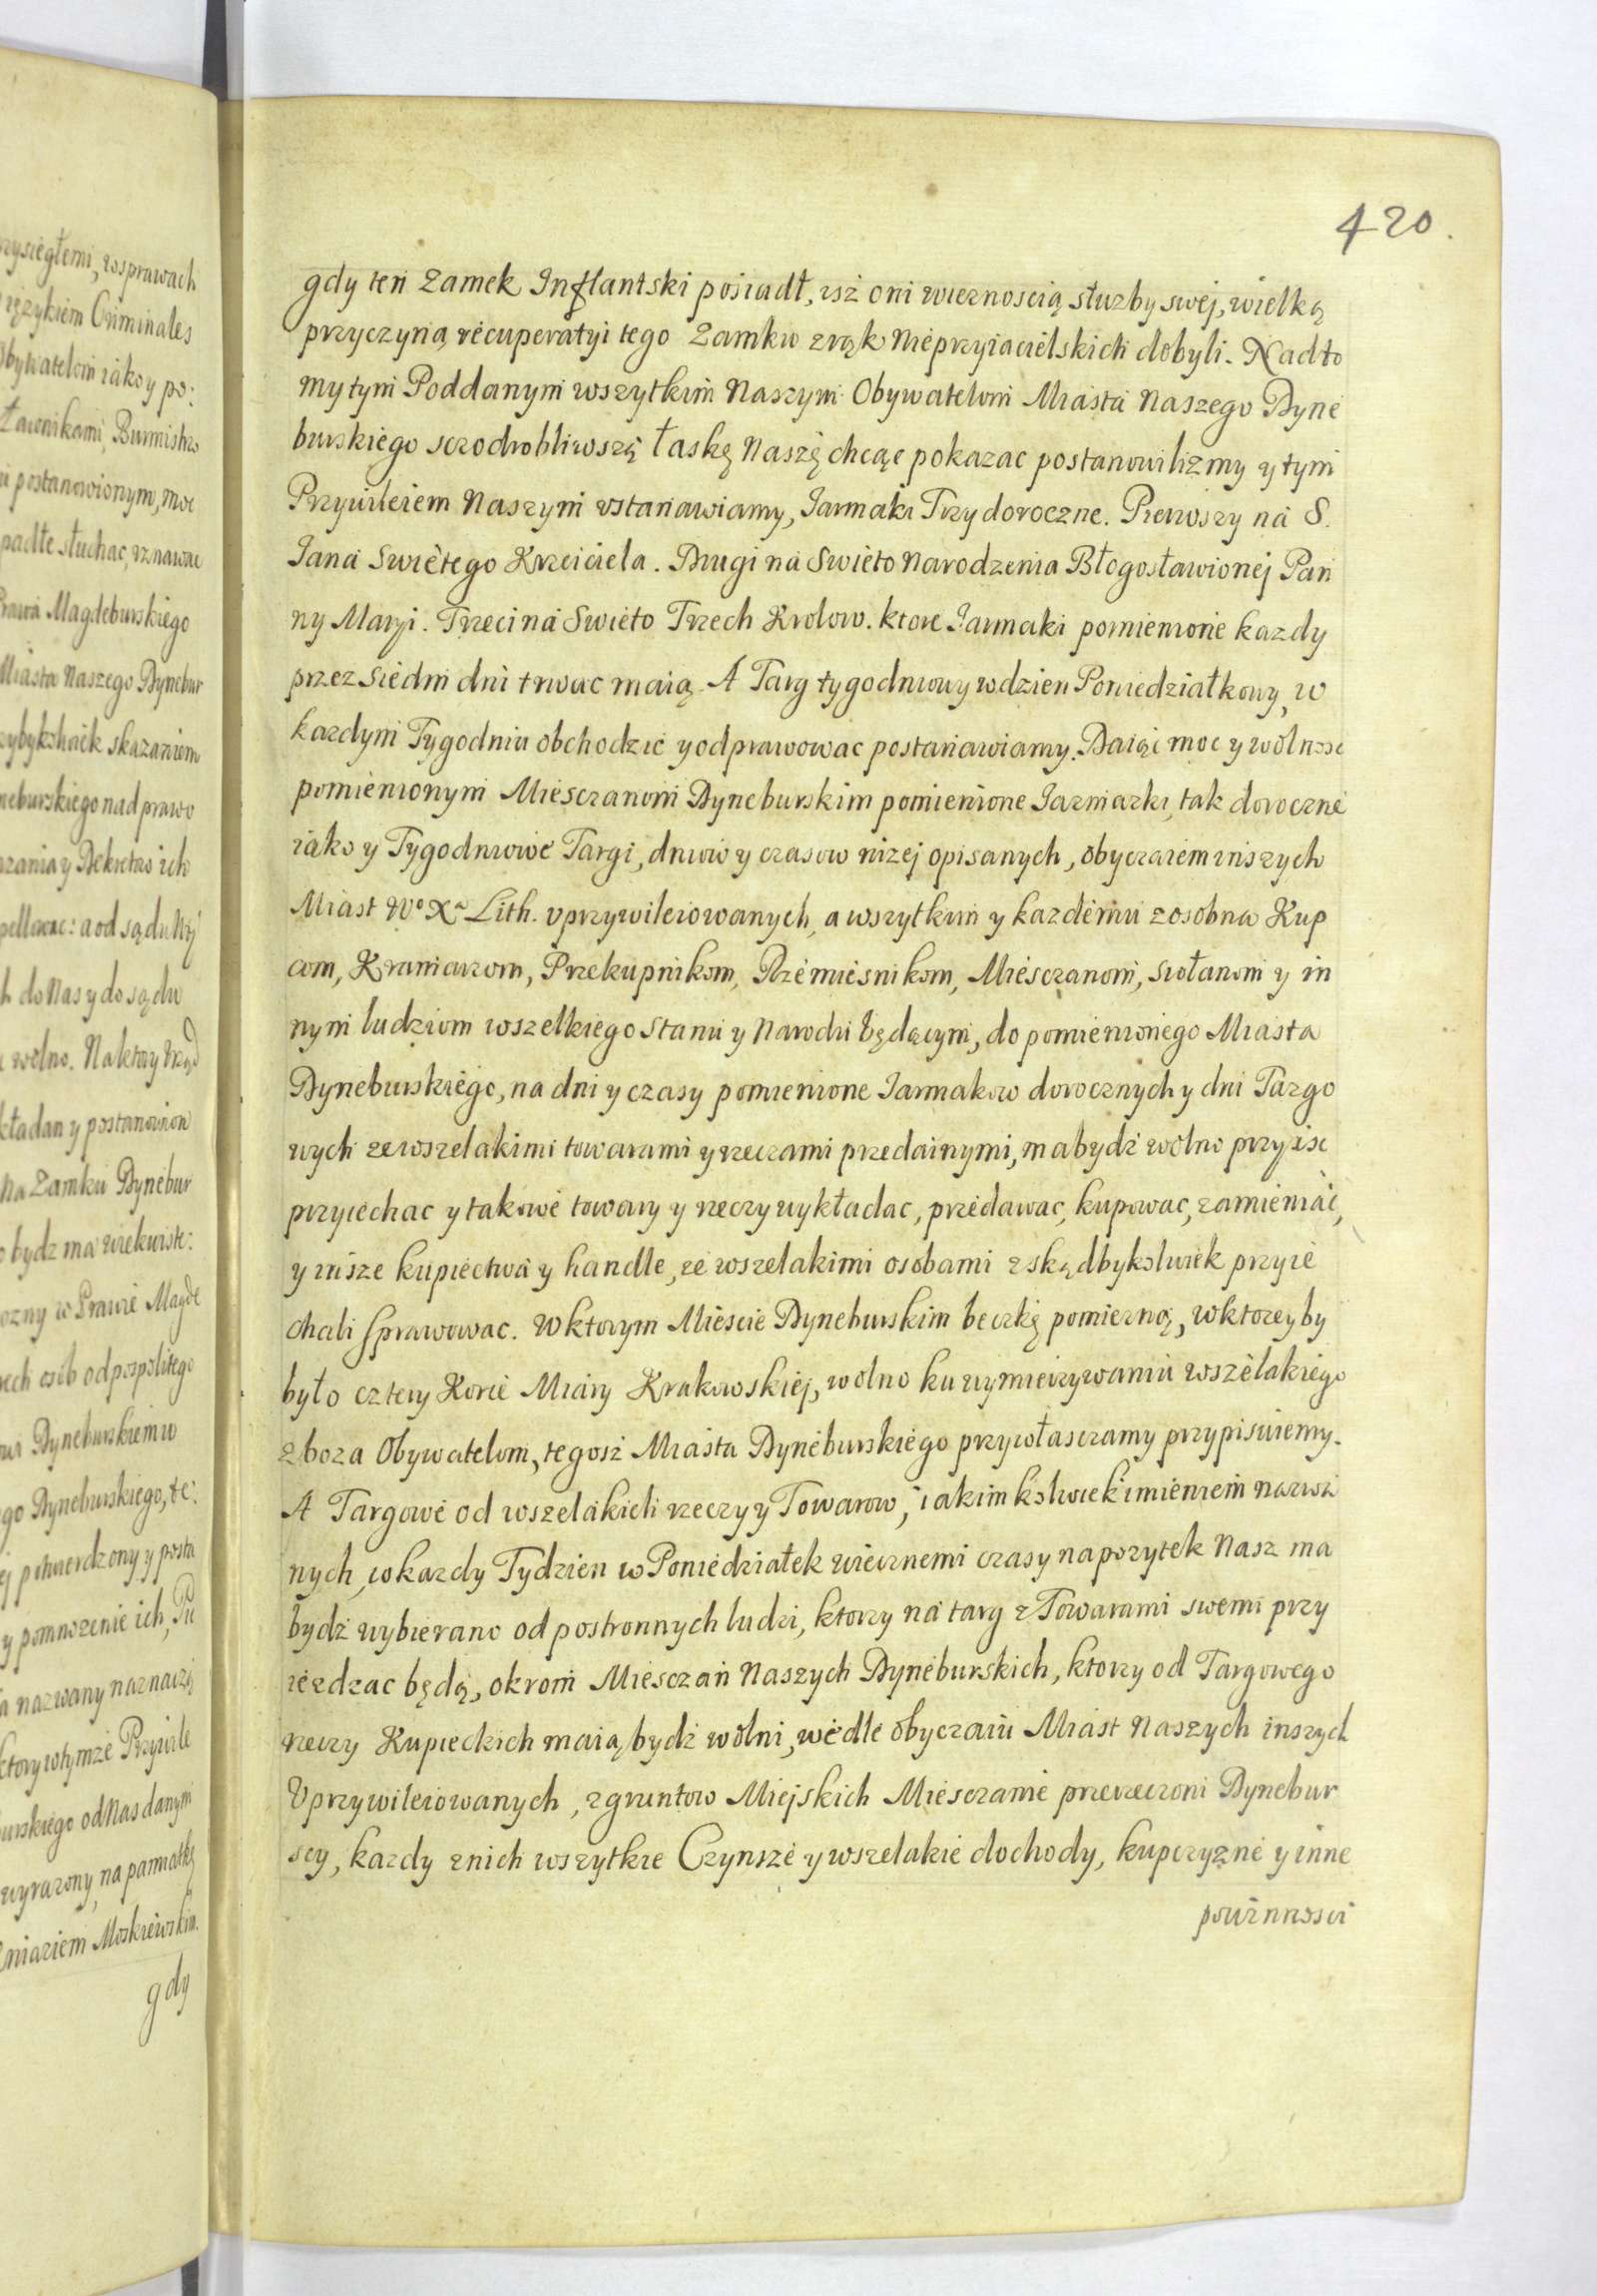 420.
gdy ten Zamek Inflantski posiadł, isz oni wiernoscią słuzby swej, wielką
przyczyną recuperatyi tego Zamku z rąk Nieprzyiacielskich dobyli. Nadto
my tym Poddanym wszytkim Naszym Obywatelom Miasta Naszego Dyne
burskiego sczodrobliwszą łaskę Naszę chcąc pokazac postanowilizmy y tym
Przywileiem Naszym vstanawiamy, Jarmaki Trzy doroczne. Pierwszy na S.
Jana Swietego Krzciciela. Drugi na Swieto Narodzenia Błogosławionej Pan
ny Maryi. Trzeci na Swieto Trzech Krolow. ktore Jarmaki pomienione kazdy
przez Siedm dni trwac maią. A Targ tygodniowy w dzien Poniedziałkowy, w
kazdym Tygodniu obchodzic y odprawowac postanawiamy. Daiąc moc y wolnosc
pomienionym Miesczanom Dyneburskim pomienione Jarmarki, tak doroczne
iako y Tygodniowe Targi, dniow y czasow nizej opisanych, obyczaiem inszych
Miast Wo Xa Lith. vprzywileiowanych, a wszytkim y kazdemu zosobna Kup
com, Kramarzom, Przekupnikom, Rzemiesnikom, Miesczanom, Siołanom y in
nym ludziom wszelkiego Stanu y Narodu będącym, do pomienionego Miasta
Dyneburskiego, na dni y czasy pomienione Jarmakow dorocznych y dni Targo
wych ze wszelakimi towarami y rzeczami przedainymi, ma bydź wolno przyisc
przyiechac y takowe towary y rzeczy wykładac, przedawac, kupowac, zamieniac,
y insze kupiectwa y handle, ze wszelakimi osobami zskądbykolwiek przyie
chali sprawowac. W ktorym Miescie Dyneburskim beczkę pomierną, w ktoreyby
było cztery Korce Miary Krakowskiej, wolno ku wymierzywaniu wszelakiego
zboza Obywatelom, tegosz Miasta Dyneburskiego przywłasczamy przypisuiemy.
A Targowe od wszelakich rzeczy y Towarow, iakimkolwiek imieniem nazwa
nych, w kazdy Tydzien w Poniedziałek wiecznemi czasy na pozytek Nasz ma
bydź wybierano od postronnych ludzi, ktorzy na targ z Towarami swemi przy
iezdzac będą, okrom Miesczan Naszych Dyneburskich, ktorzy od Targowego
rzeczy Kupieckich maią bydź wolni, wedle obyczaiu Miast Naszych inszych
Vprzywileiowanych, z gruntow Miejskich Miesczanie przerzeczoni Dynebur
scy, kazdy z nich wszytkie Czynsze y wszelakie dochody, kupczyzne y inne
powinnosci
rzysięgłemi, w sprawach
ięzykiem Criminales
Obywatelom iako y po:
Ławnikami, Burmistrz
postanowionym, moc
padłe słuchac, vznawac
Prawa Magdeburskiego
Miasta Naszego Dynebur
skazaniem
neburskiego nad prawo
zania y Dekretu ich
pellowac: a od sądu
do Nas y do sądu
wolno. Na ktory Vrząd
kładan y postanowion
na Zamku Dynebur
bydz ma wiekuiste:
w Prawie Magde
rech osób od pospolitego
Dyneburskiemu
go Dyneburskiego, &c.
potwierdzony y posta
y pomnozenie ich,
a nazwany naznaczą
ktory w tymze Przywile
burskiego od Nas danym
wyrazony, na pamiatkę
Kniaziem Moskiewskim.
gdy